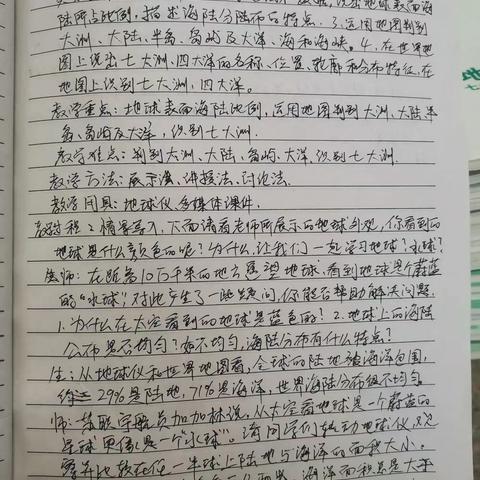 说出地球表面海
陆所占比例,描述海陆分陆布的特点. 3.运用地图判别
大洲、大陆、半岛、岛屿及大洋、海和海峡。4.在世界地
图上说出七大洲,四大洋的名称、位置、轮廓和分布特征,在
地图上识别七大洲,四大洋。
教学重点:地球表面海陆比例,运用地图判别大洲、大陆、半
岛、岛屿及大洋,识别七大洲.
教学难点:判别大洲、大陆、岛屿、大洋,识别七大洲.
教学方法:展示演、讲授法、讨论法.
教学用具:地球仪,多媒体课件.
教学过程:情景导入,下面请看老师所展示的地球外观,你看到的
地球是什么颜色的呢?为什么,让我们一起学习地球?水球?
教师:在距离10万千米的地方遥望地球,看到地球是个蔚蓝
的"水球",对此产生了一些疑问,你能否帮助解决问题.
1.为什么在太空看到的地球是蓝色的? 2.地球上的海陆
公布是否均匀?如不均匀,海陆分布有什么特点?
生:从地球仪和世界地图看,全球的陆地被海洋包围,
29%是陆地,71%是海洋,世界海陆分布很不均匀.
师:苏联宇航员加加林说,从太空看地球是一个蔚蓝的
星球更像是一个"水球"。请同学们转动地球仪,观
察并比较在任一半球上陆地与海洋的面积大小。
海洋面积总是大